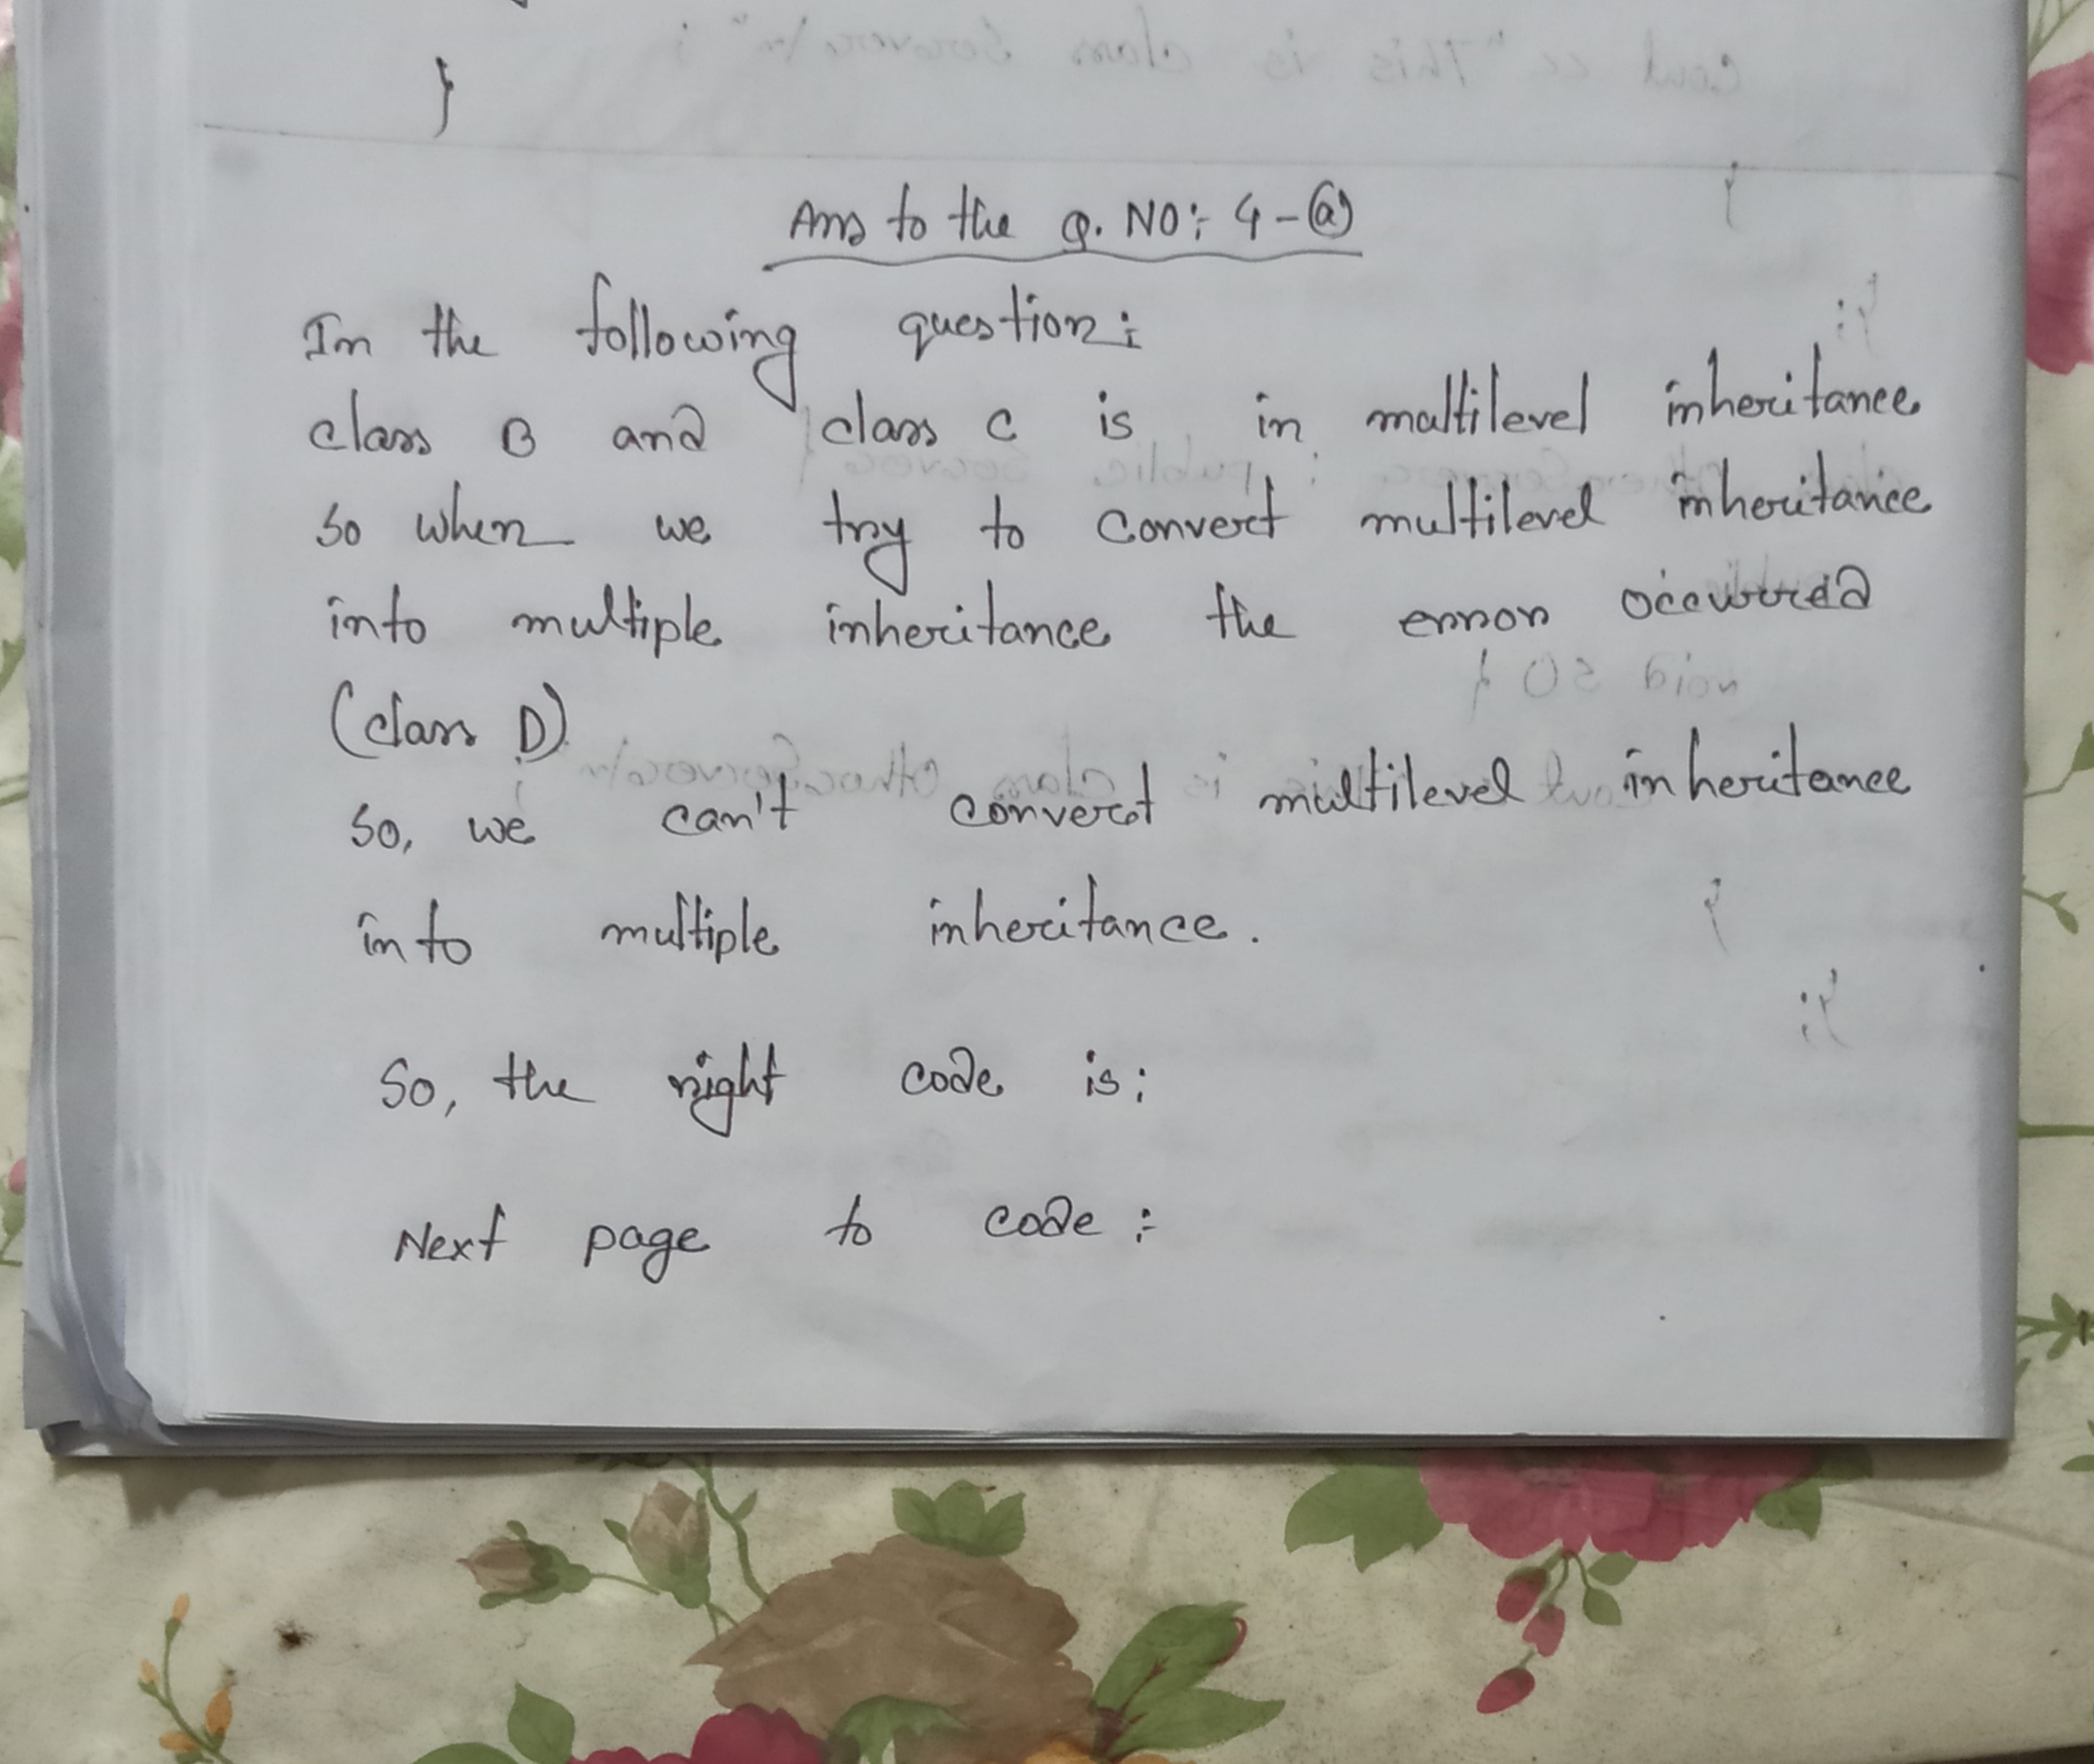 }
Ans to the Q. NO: 4-(a)
In the following question:
class B and class C is in maltilevel inheritance
so when we try to convert multilevel inheritance
into multiple inheritance the error occurred
(class D)
so, we can't convert multilevel inheritance
into multiple inheritance.
So, the right code is:
Next page to code :